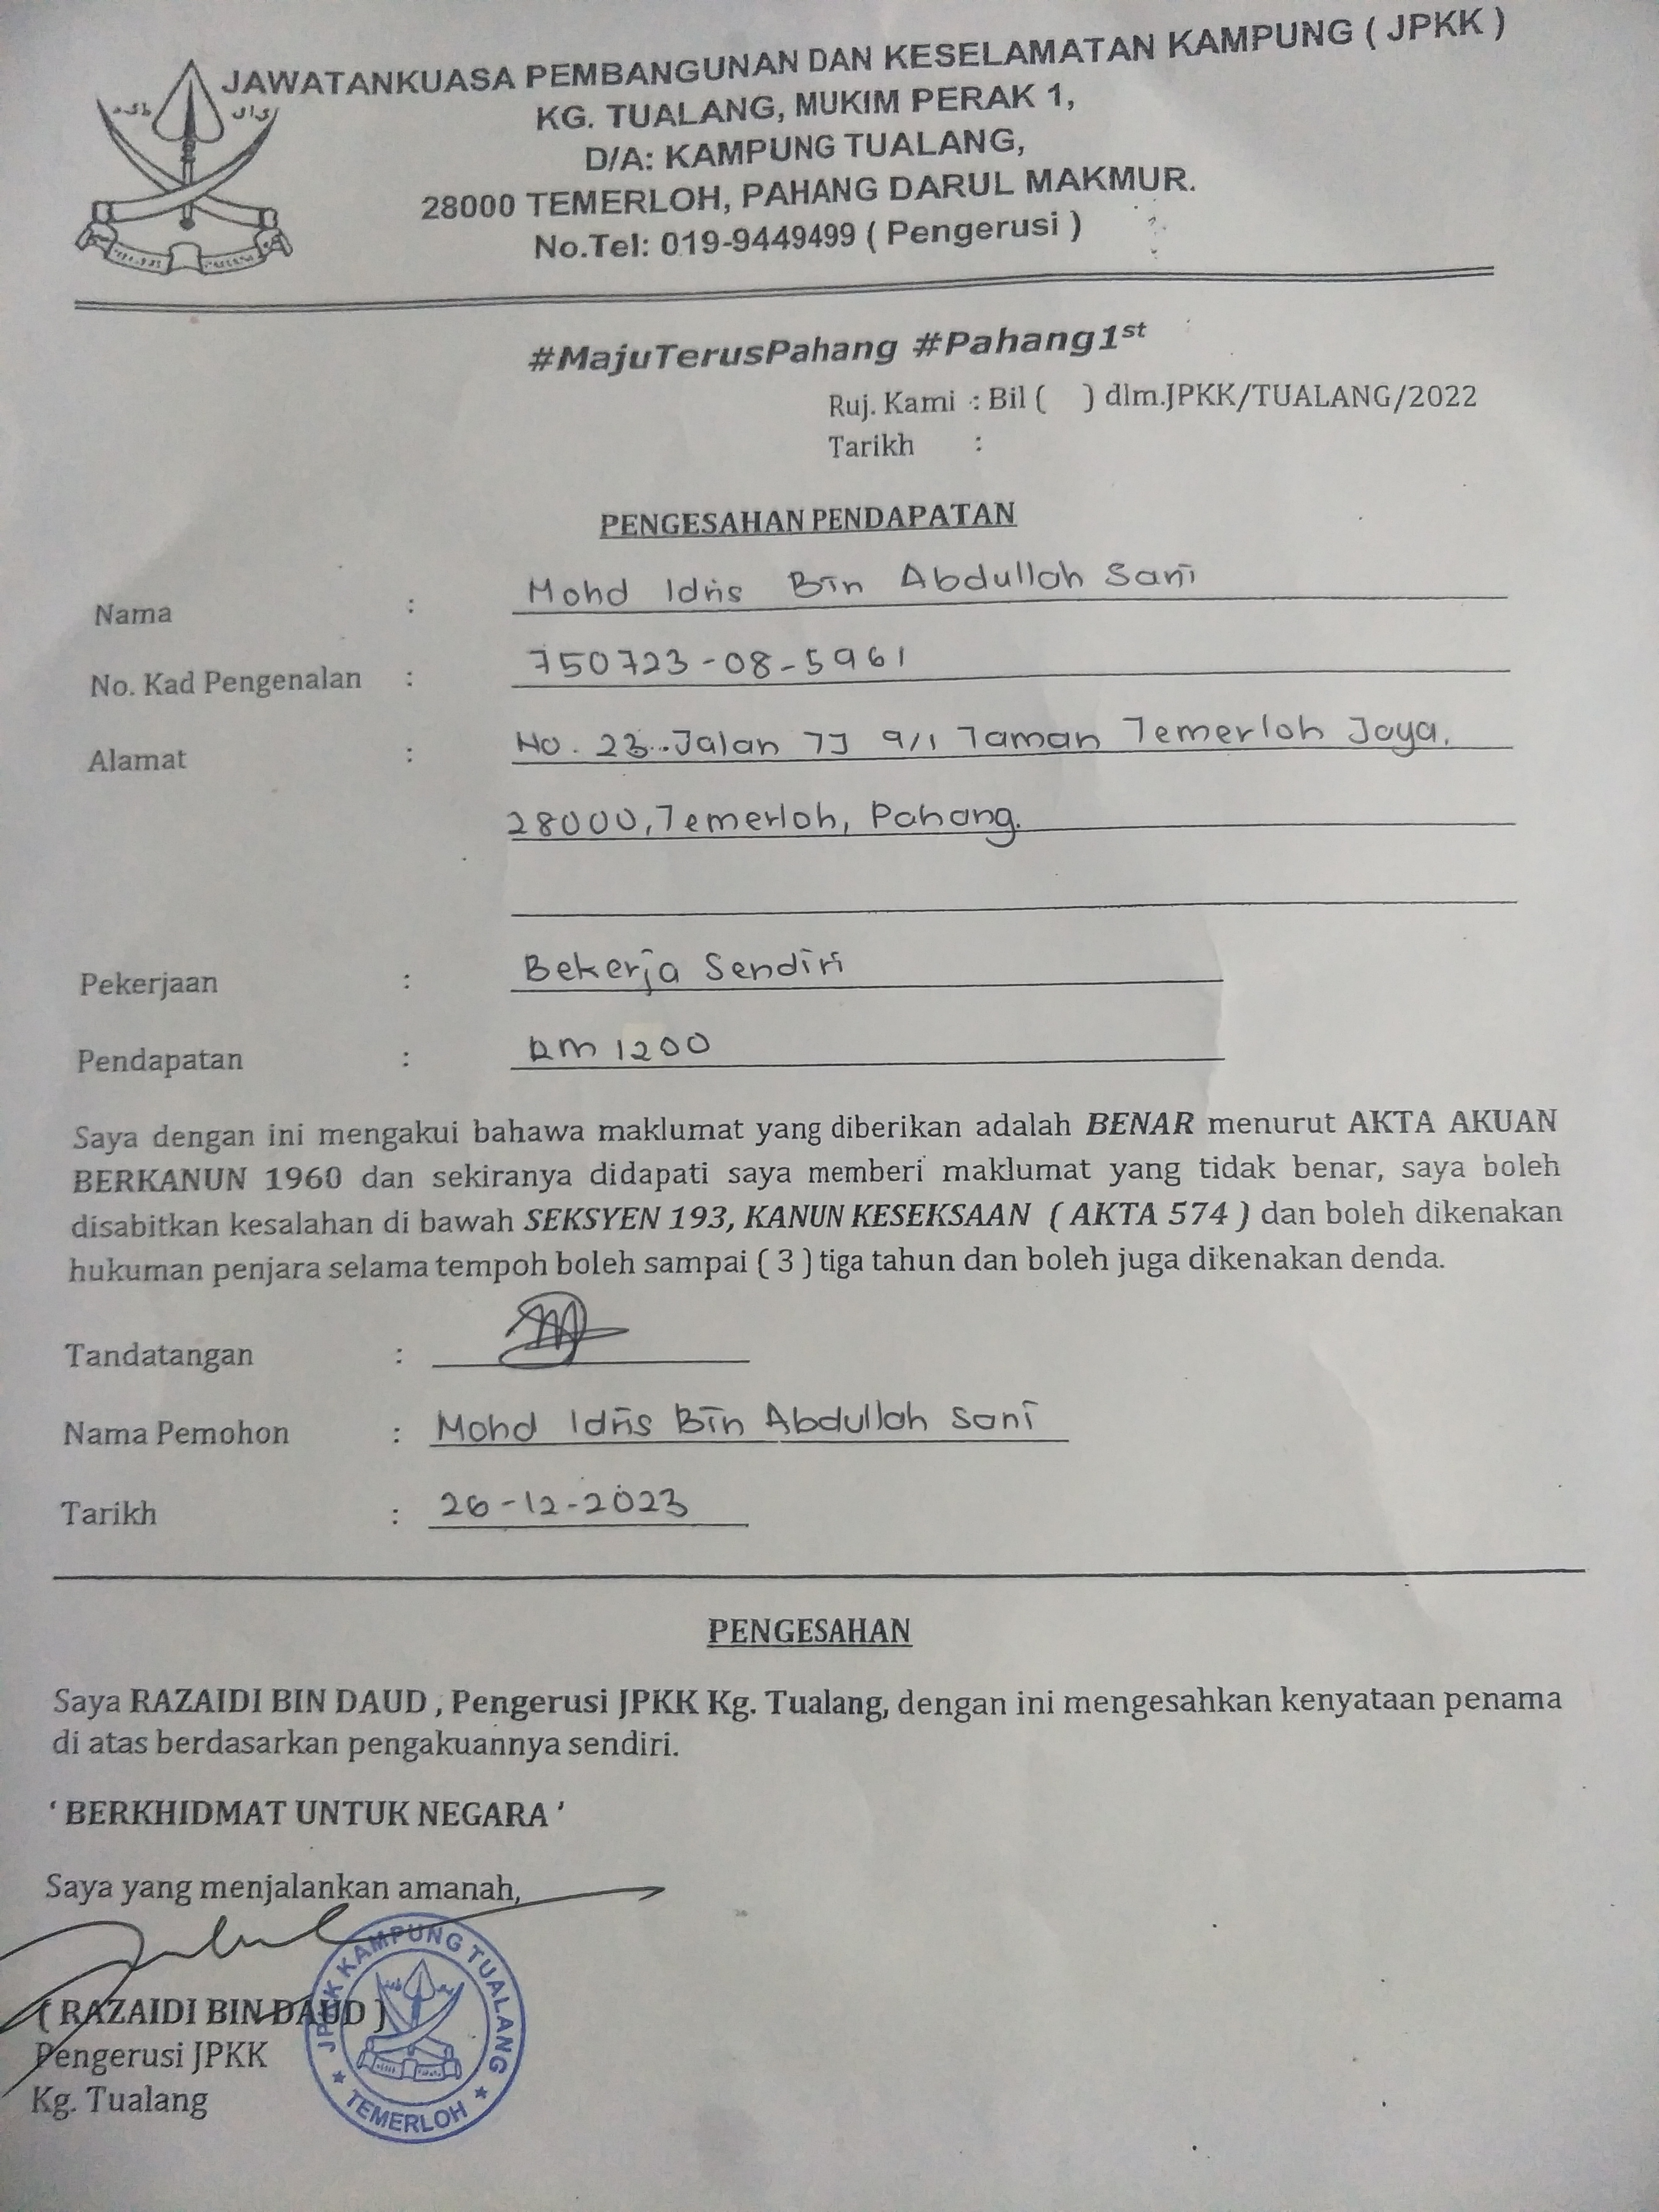 JAWATANKUASA PEMBANGUNAN DAN KESELAMATAN KAMPUNG ( JPKK )
KG. TUALANG, MUKIM PERAK 1,
D/A: KAMPUNG TUALANG,
28000 TEMERLOH, PAHANG DARUL MAKMUR.
No.Tel: 019-9449499 ( Pengerusi )
#MajuTerusPahang #Pahang1st
Ruj. Kami : Bil ( ) dlm.JPKK/TUALANG/2022
Tarikh :
PENGESAHAN PENDAPATAN
Nama : Mohd Idris Bin Abdullah Sani
No. Kad Pengenalan : 750723-08-5961
Alamat : No. 23 Jalan TJ 9/1 Taman Temerloh Jaya,
28000, Temerloh, Pahang.
Pekerjaan : Bekerja Sendiri
Pendapatan : RM 1200
Saya dengan ini mengakui bahawa maklumat yang diberikan adalah BENAR menurut AKTA AKUAN
BERKANUN 1960 dan sekiranya didapati saya memberi maklumat yang tidak benar, saya boleh
disabitkan kesalahan di bawah SEKSYEN 193, KANUN KESEKSAAN ( AKTA 574 ) dan boleh dikenakan
hukuman penjara selama tempoh boleh sampai ( 3 ) tiga tahun dan boleh juga dikenakan denda.
Tandatangan :
Nama Pemohon : Mohd Idris Bin Abdullah Sani
Tarikh : 26-12-2023
PENGESAHAN
Saya RAZAIDI BIN DAUD , Pengerusi JPKK Kg. Tualang, dengan ini mengesahkan kenyataan penama
di atas berdasarkan pengakuannya sendiri.
‘ BERKHIDMAT UNTUK NEGARA ’
Saya yang menjalankan amanah,
( RAZAIDI BIN DAUD )
Pengerusi JPKK
Kg. Tualang
JPKK KAMPUNG TUALANG
TEMERLOH